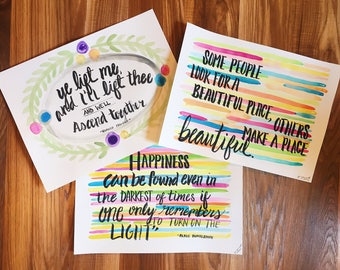 ye lift me,
and I'll lift thee
AND WE'LL
Ascend together
SOME PEOPLE
LOOK FOR A
BEAUTIFUL PLACE, OTHERS
MAKE A PLACE
beautiful.
HAPPINESS
can be found even in
the DARKEST of times if
one only remembers
TO TURN ON THE
LIGHT"